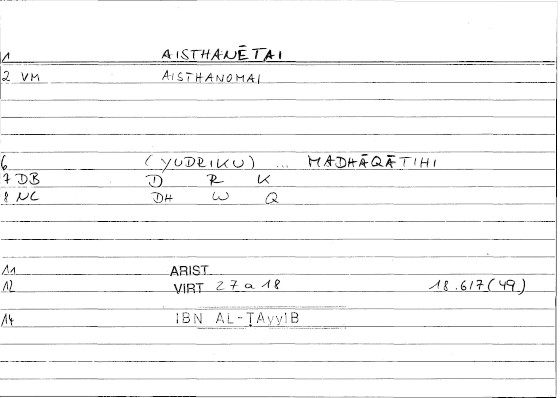 1 AISTHANĒTAI
2 VM AISTHANOMAI
6 (YUDRIKU) ... MADHĀQĀTIHI
7 DB D R K
8 NC DH W Q
11 ARIST
12 VIRT 27 a 18 18.617(49)
14 IBN AL-ṬAyyIB